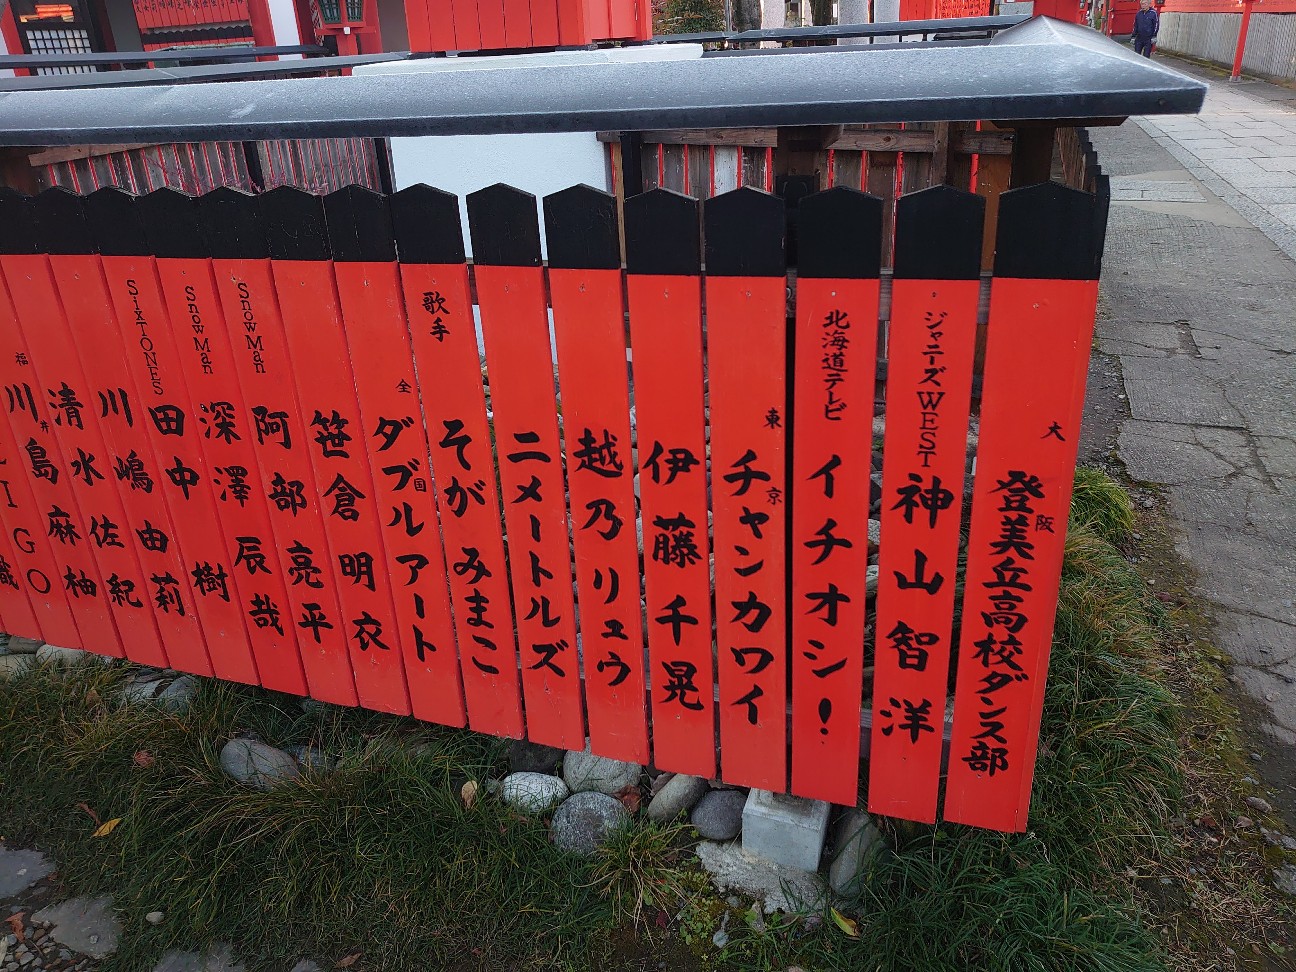 大阪 登美丘高校ダンス部
ジャニーズWEST 神山智洋
北海道テレビ イチオシ!
東京 チャンカワイ
伊藤千晃
越乃リュウ
ニメートルズ
歌手 そがみまこ
全国 ダブルアート
笹倉明衣
SnowMan 阿部亮平
SnowMan 深澤辰哉
SixTONES 田中樹
川嶋由莉
清水佐紀
福井 川島麻柚